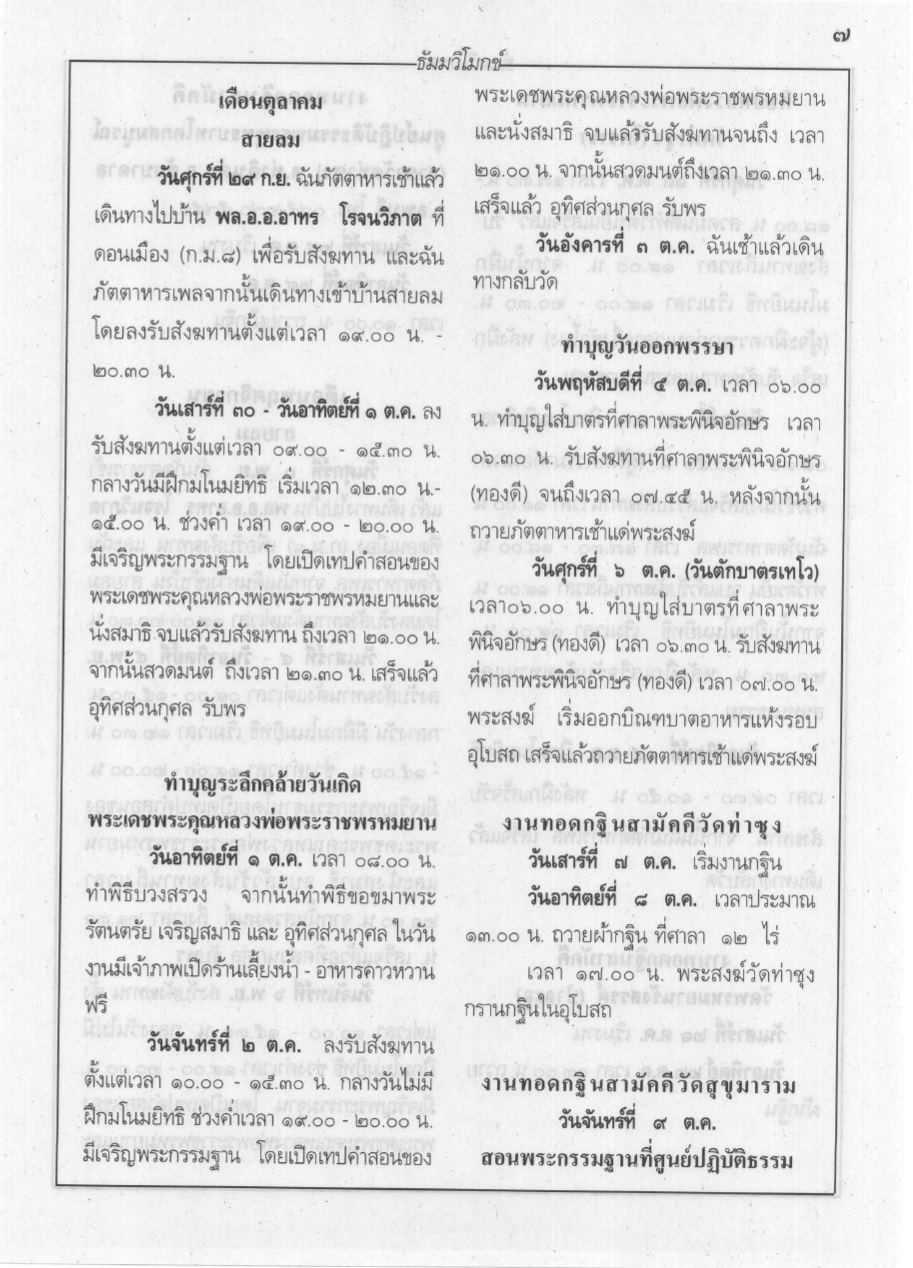 ๗
ธัมมวิโมกข์
เดือนตุลาคม
สายลม
วันศุกร์ที่ ๒๙ ก.ย. ฉันภัตตาหารเช้าแล้ว
เดินทางไปบ้าน พล.อ.อ.อาทร โรจนวิภาต ที่
ดอนเมือง (ก.ม.๘) เพื่อรับสังฆทาน และฉัน
ภัตตาหารเพลจากนั้นเดินทางเข้าบ้านสายลม
โดยลงรับสังฆทานตั้งแต่เวลา ๑๙.๐๐ น. -
๒๐.๓๐ น.
วันเสาร์ที่ ๓๐ - วันอาทิตย์ที่ ๑ ต.ค. ลง
รับสังฆทานตั้งแต่เวลา ๐๙.๐๐ - ๑๕.๓๐ น.
กลางวันมีฝึกมโนมยิทธิ เริ่มเวลา ๑๒.๓๐ น.-
๑๕.๐๐ น. ช่วงค่ำ เวลา ๑๙.๐๐ - ๒๐.๐๐ น.
มีเจริญพระกรรมฐาน โดยเปิดเทปคำสอนของ
พระเดชพระคุณหลวงพ่อพระราชพรหมยานและ
นั่งสมาธิ จบแล้วรับสังฆทาน ถึงเวลา ๒๑.๐๐ น.
จากนั้นสวดมนต์ ถึงเวลา ๒๑.๓๐ น. เสร็จแล้ว
อุทิศส่วนกุศล รับพร
ทำบุญระลึกคล้ายวันเกิด
พระเดชพระคุณหลวงพ่อพระราชพรหมยาน
วันอาทิตย์ที่ ๑ ต.ค. เวลา ๐๘.๐๐ น.
ทำพิธีบวงสรวง จากนั้นทำพิธีขอขมาพระ
รัตนตรัย เจริญสมาธิ และ อุทิศส่วนกุศล ในวัน
งานมีเจ้าภาพเปิดร้านเลี้ยงน้ำ - อาหารคาวหวาน
ฟรี
วันจันทร์ที่ ๒ ต.ค. ลงรับสังฆทาน
ตั้งแต่เวลา ๑๐.๐๐ - ๑๕.๓๐ น. กลางวันไม่มี
ฝึกมโนมยิทธิ ช่วงค่ำเวลา ๑๙.๐๐ - ๒๐.๐๐ น.
มีเจริญพระกรรมฐาน โดยเปิดเทปคำสอนของ
พระเดชพระคุณหลวงพ่อพระราชพรหมยาน
และนั่งสมาธิ จบแล้วรับสังฆทานจนถึง เวลา
๒๑.๐๐ น. จากนั้นสวดมนต์ถึงเวลา ๒๑.๓๐ น.
เสร็จแล้ว อุทิศส่วนกุศล รับพร
วันอังคารที่ ๓ ต.ค. ฉันเช้าแล้วเดิน
ทางกลับวัด
ทำบุญวันออกพรรษา
วันพฤหัสบดีที่ ๕ ต.ค. เวลา ๐๖.๐๐
น. ทำบุญใส่บาตรที่ศาลาพระพินิจอักษร เวลา
๐๖.๓๐ น. รับสังฆทานที่ศาลาพระพินิจอักษร
(ทองดี) จนถึงเวลา ๐๗.๔๕ น. หลังจากนั้น
ถวายภัตตาหารเช้าแด่พระสงฆ์
วันศุกร์ที่ ๖ ต.ค. (วันตักบาตรเทโว)
เวลา๐๖.๐๐ น. ทำบุญใส่บาตรที่ศาลาพระ
พินิจอักษร (ทองดี) เวลา ๐๖.๓๐ น. รับสังฆทาน
ที่ศาลาพระพินิจอักษร (ทองดี) เวลา ๐๗.๐๐ น.
พระสงฆ์ เริ่มออกบิณฑบาตอาหารแห้งรอบ
อุโบสถ เสร็จแล้วถวายภัตตาหารเช้าแด่พระสงฆ์
งานทอดกฐินสามัคคีวัดท่าซุง
วันเสาร์ที่ ๗ ต.ค. เริ่มงานกฐิน
วันอาทิตย์ที่ ๘ ต.ค. เวลาประมาณ
๑๓.๐๐ น. ถวายผ้ากฐิน ที่ศาลา ๑๒ ไร่
เวลา ๑๗.๐๐ น. พระสงฆ์วัดท่าซุง
กรานกฐินในอุโบสถ
งานทอดกฐินสามัคคีวัดสุขุมาราม
วันจันทร์ที่ ๙ ต.ค.
สอนพระกรรมฐานที่ศูนย์ปฏิบัติธรรม